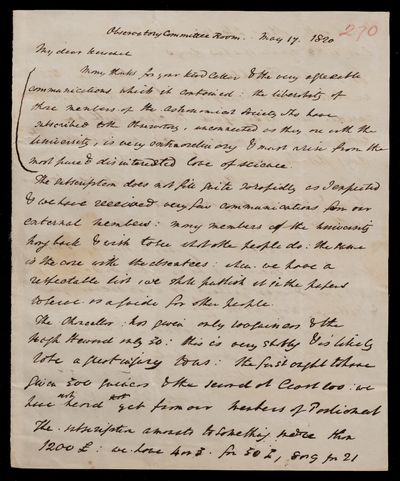 Observatory Committee Room. May 17. 1820
270
My dear Herschel
Many thanks for your kind letter & the very agreeable
communications which it contained: the liberality of
those members of the Astronomical Society who have
subscribed to the Observatory, unconnected as they are with the
University, is very extraordinary & must arise from the
most pure & disinterested love of science.
The subscription does not fill quite so rapidly as I expected
& we have received very few communications from our
external members: many members of the University
hang back & wish to see what other people do: the same
is the case with the absentees: when we have a
respectable list we shall publish it in the papers
to serve as a guide for other people.
The Chancellor has given only 100 guineas & the
High Steward only 50: this is very shabby & is likely
to be a great injury to us: the first ought to have
given 500 guineas & the second at least 100: we
have not heard yet from our Members of Parliament
The subscription amounts to something more than
1200 £: we have for 50 £, for 21